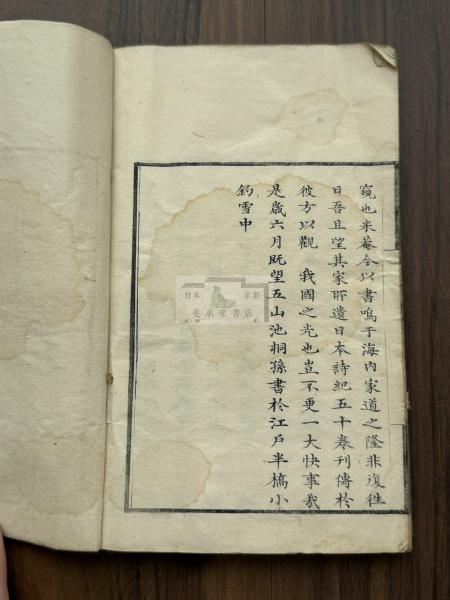 窺也米菴今以書鳴于海内家道之隆非復徃
日吾且望其家所遺日本詩紀五十卷刊傳於
彼方以觀 我國之光也豈不更一大快事哉
是歳六月既望五山池桐孫書於江戸半槗小
釣雪中
日本 京都
書店